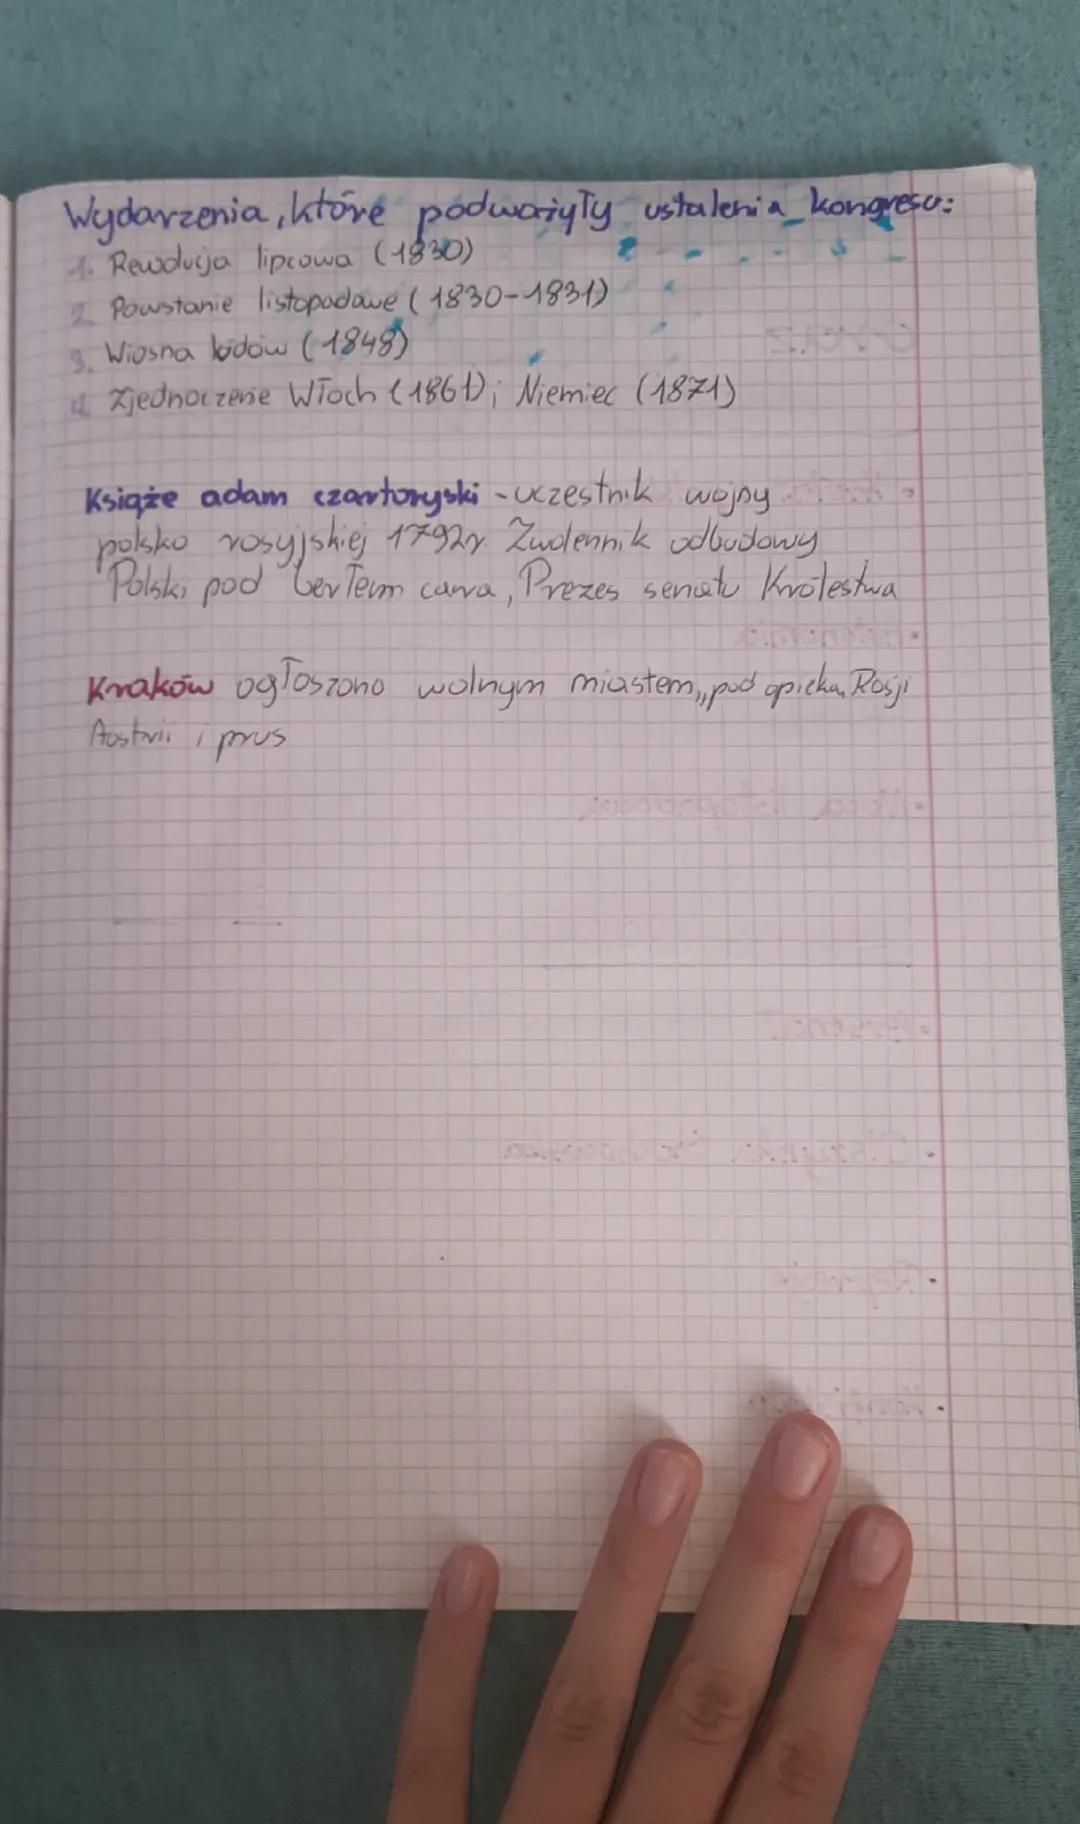 Wydarzenia, które podważyły ustalenia kongresu:
1. Rewolucja lipcowa (1830)
2. Powstanie listopadowe (1830-1831)
3. Wiosna ludów (1848)
4. Zjednoczenie Włoch (1861); Niemiec (1871)
Książe adam czartoryski - uczestnik wojny
polsko rosyjskiej 1792r. Zwolennik odbudowy
Polski pod berłem cara, Prezes senatu Królestwa
Kraków ogłoszono wolnym miastem,, pod opieką Rosji
Austrii i prus